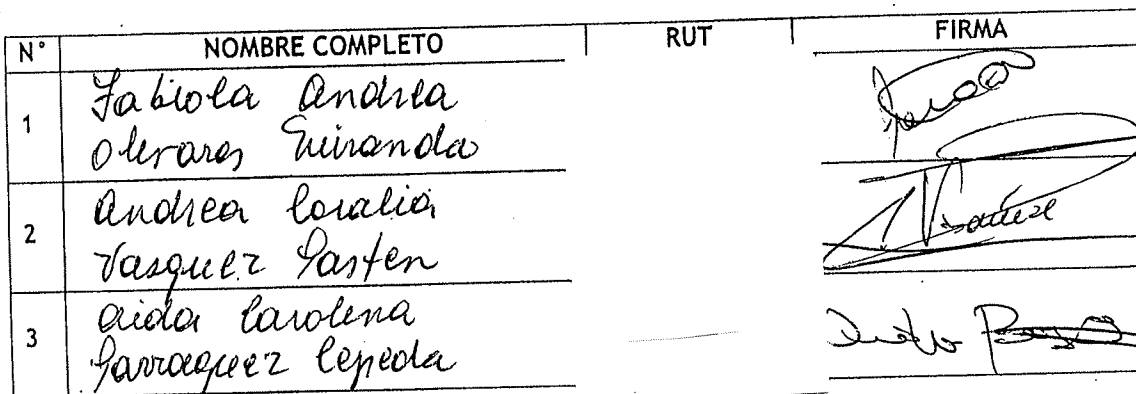 N° NOMBRE COMPLETO RUT FIRMA
1 Fabiola Andrea
Olivares Miranda
2 Andrea Coralia
Vasquez Pasten
3 Aida Carolina
Parraguez Cepeda